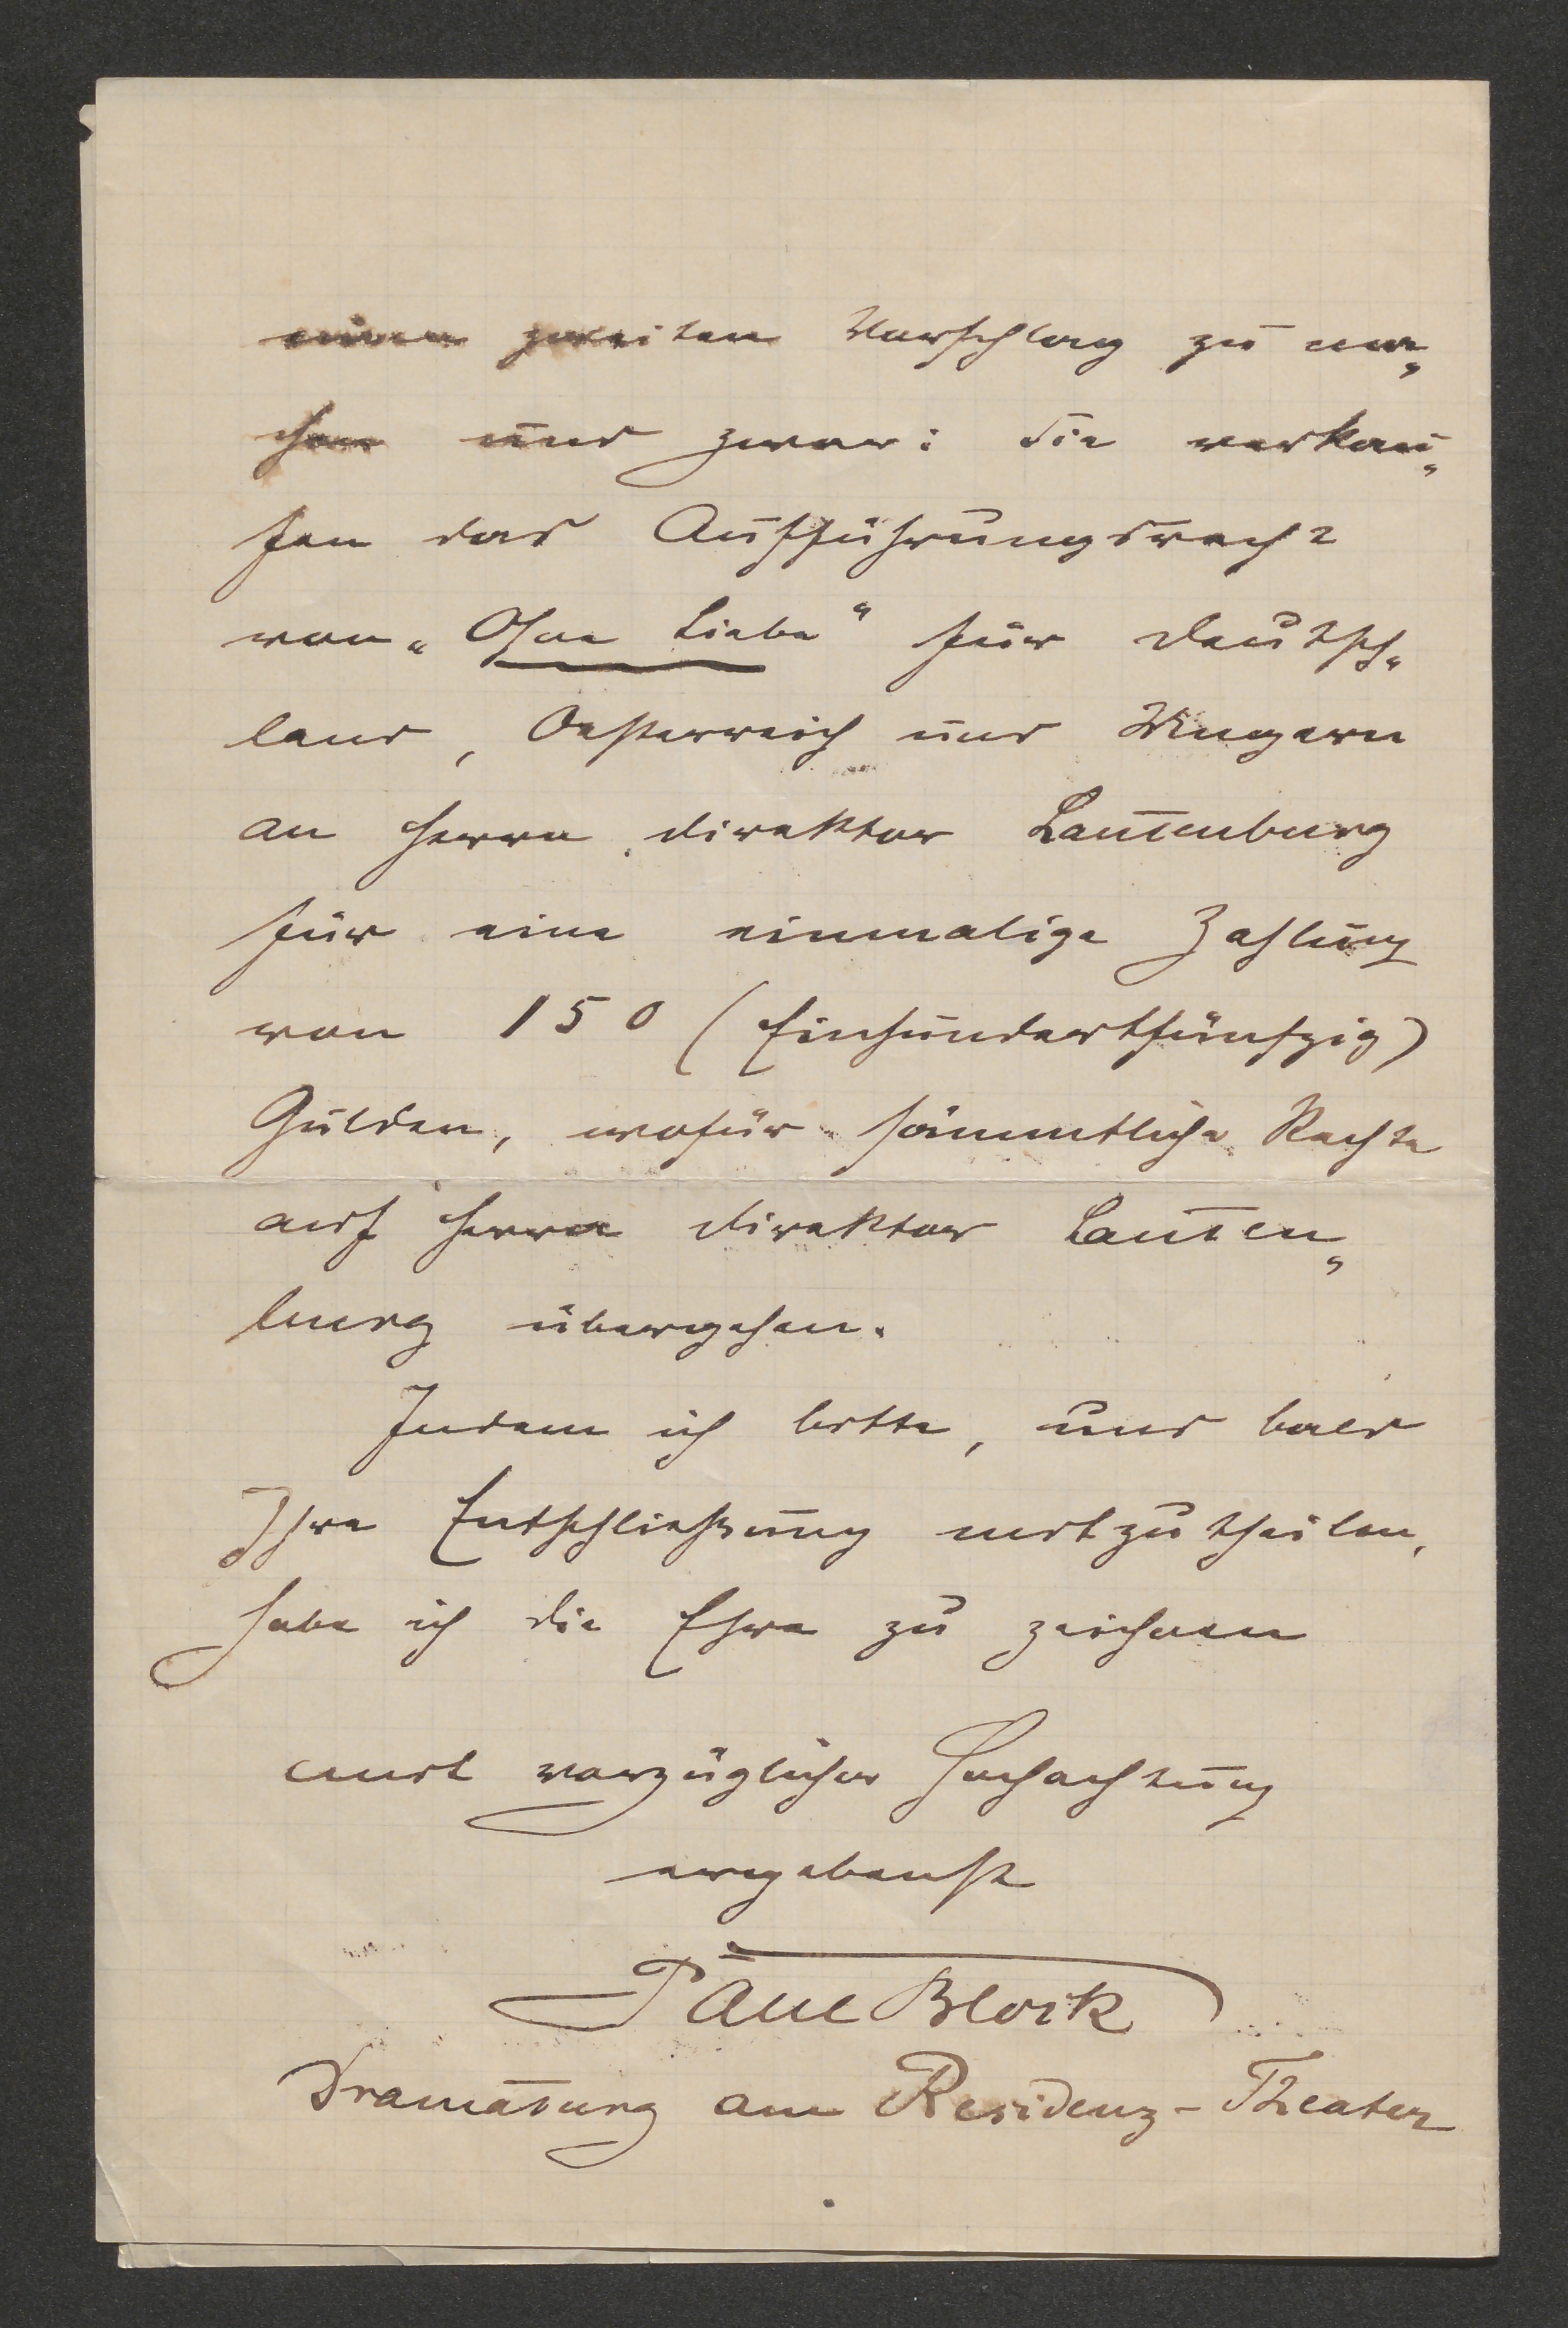 einen zweiten Vorschlag zu ma„
chen und zwar: Sie verkau„
fen das Aufführungsrecht
von „Ohne Liebe“ für Deutsch„
land, Oesterreich und Ungarn
an Herrn Direktor Lautenburg
für eine einmalige Zahlung
von 150 (Einhundertfünfzig)
Gulden, wofür sämmtliche Rechte
auf Herrn Direktor Lauten„
burg übergehen.
Indem ich bitte, uns bald
Ihre Entschließung mitzutheilen,
habe ich die Ehre zu zeichnen
mit vorzüglicher Hochachtung
ergebenst
Paul Block
Dramaturg am Residenz-Theater